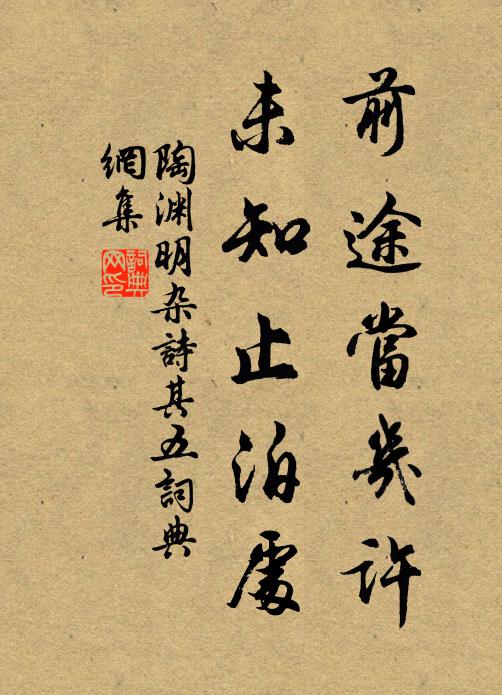 前途當幾許
未知止泊處
陶渊明杂詩其五詞典
網集
詞典
网印